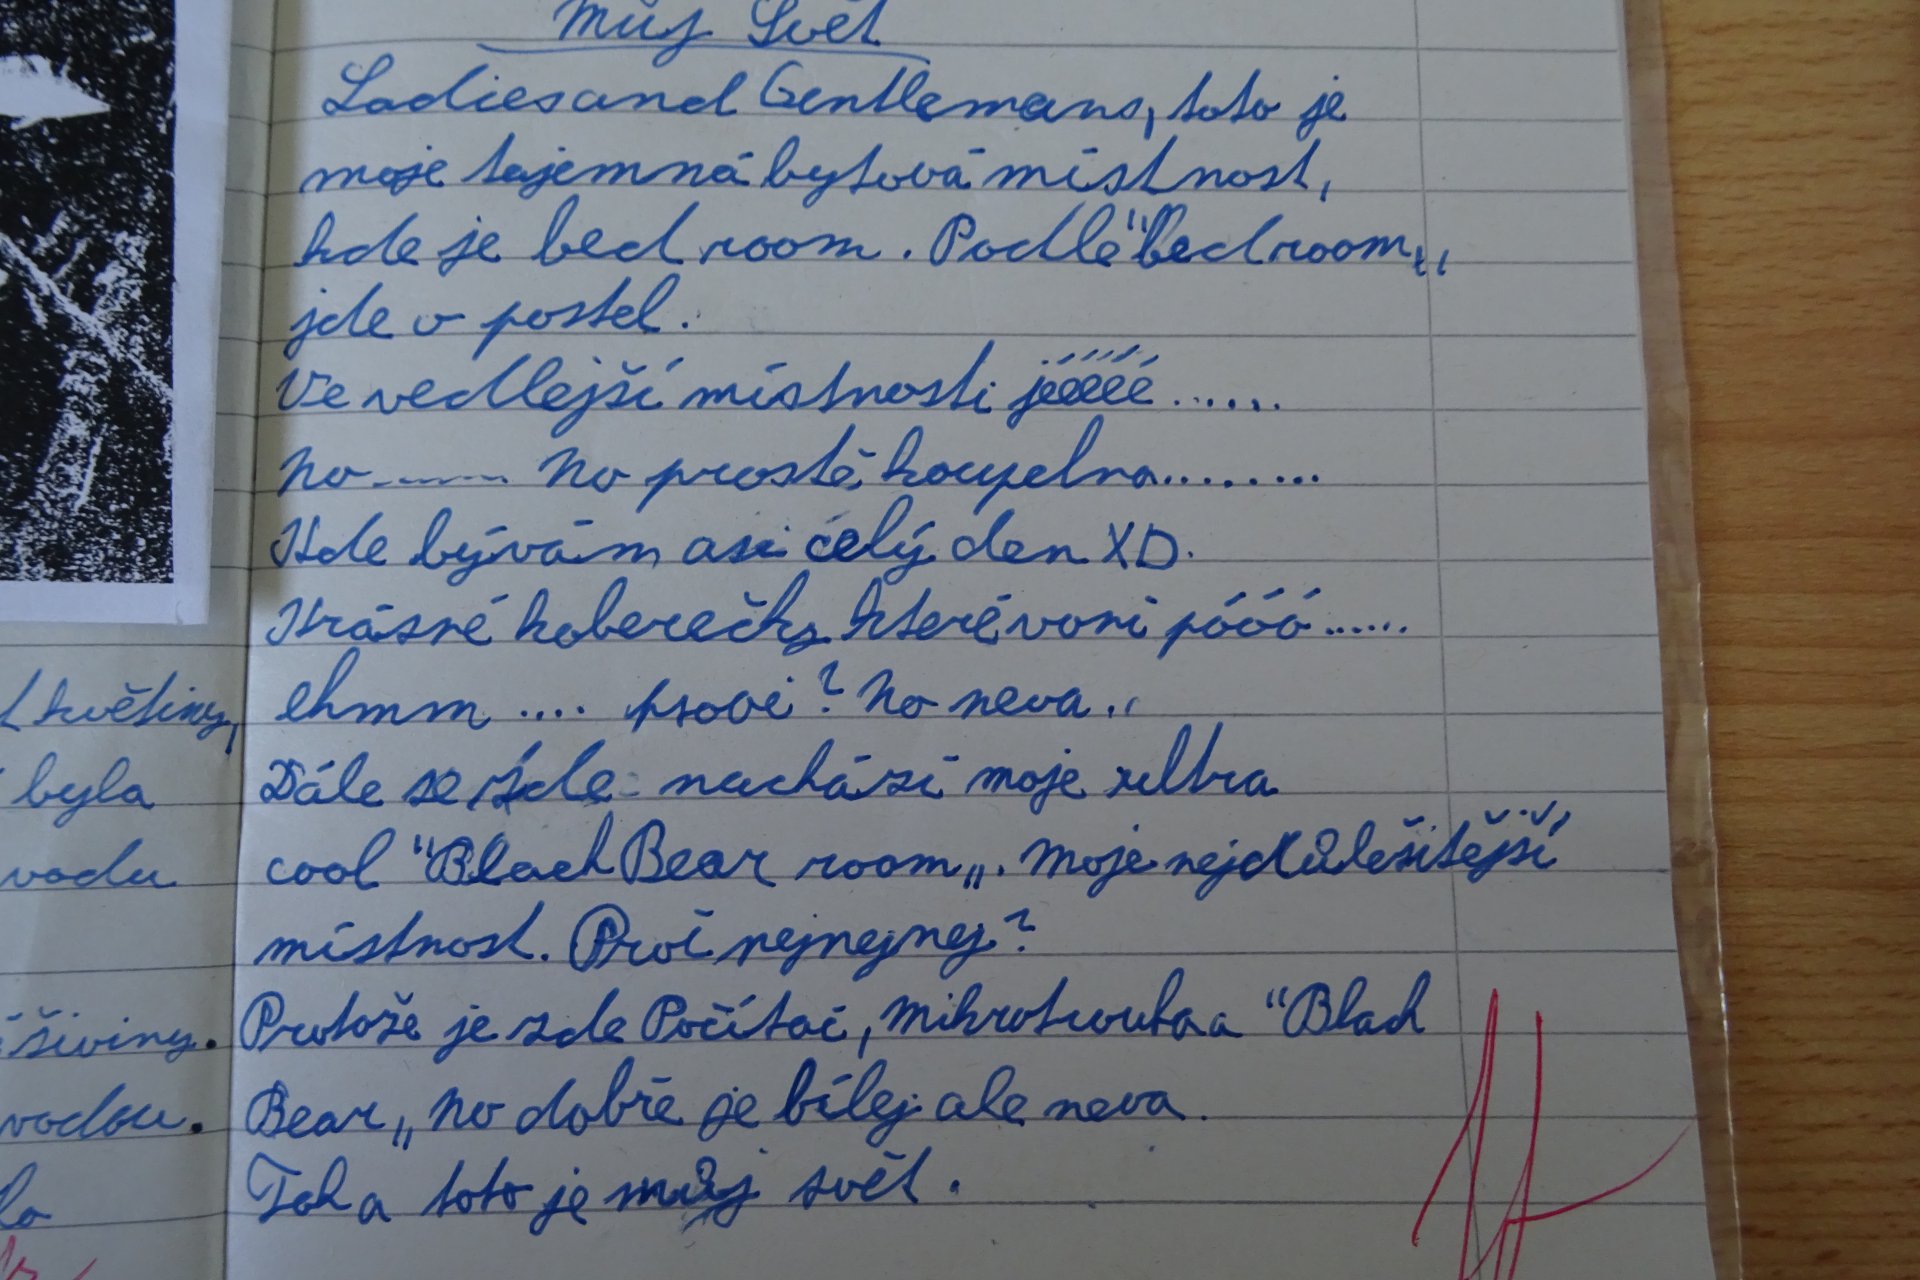 Můj Svět
Ladies and Gentlemans, toto je
moje tajemná bytová místnost,
kde je bed room. Podle "bed room„
jde o postel.
Ve vedlejší místnosti jéééé......
No....... No prostě koupelna.........
Kde bývám asi celý den XD.
Krásné koberečky které voní póóó......
ehmm .... psovi? No neva..
Dále se zde nachází moje ultra
cool "Black Bear room„. Moje nejdůležitější
místnost. Proč nejnejnej?
Protože je zde Počítač, Mikrotrouba a "Black
Bear„ No dobře je bílej ale neva.
Tak a toto je můj svět.
květiny,
byla
vodu
šiviny.
vodou.